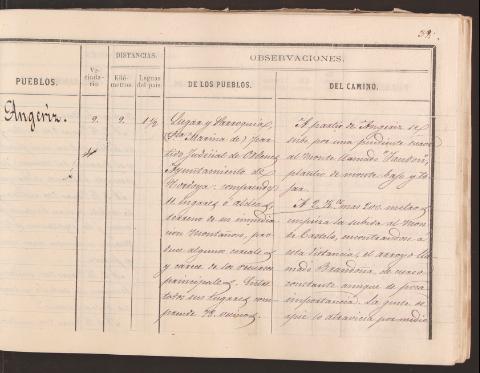 39.
PUEBLOS.
Vecindario
DISTANCIAS.
Kilómetros
Leguas del país
OBSERVACIONES.
DE LOS PUEBLOS.
DEL CAMINO.
Angeriz.
9.
9.
1 1/2
Lugar y Parroquia,
(Sta Marina de) Par
tido Judicial de Ordenes
Ayuntamiento de
Tordoya: comprende
11 lugares ó aldeas,
terreno de su inmedia
cion Montañoso, pro
duce algunos cereales
y carece de los recursos
principales. Entre
todos sus lugares com
prende 78. vecinos.
A partir de Angeriz se
sube por una pendiente suave
al monte llamado
plantío de monte bajo y to
jar.
A 2. K.s mas 200. metros
empieza la subida al Mon
te Castelo, encontrandose a
esta distancia, el arroyo lla
mado Brandoña, de curso
constante aunque de poca
importancia. La gente se
que lo atraviesa por medio